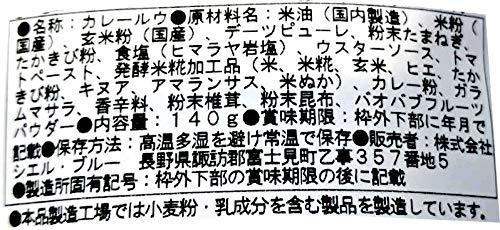 ●名称：カレールウ●原材料名：米油（国内製造）、米粉（
国産）、玄米粉（国産）、デーツピューレ、粉末たまねぎ、
たかきび粉、食塩（ヒマラヤ岩塩）、ウスターソース、トマ
トペースト、発酵米糀加工品（米、米糀、玄米、ヒエ、たか
きび粉、キヌア、アマランサス、米ぬか）、カレー粉、ガラ
ムマサラ、香辛料、粉末椎茸、粉末昆布、バオバブフルーツ
パウダー●内容量：140ｇ●賞味期限：枠外下部に年月で
記載●保存方法：高温多湿を避け常温で保存●販売者：株式会社
シエル・ブルー　長野県諏訪郡富士見町乙事357番地5
●製造所固有記号：枠外下部の賞味期限の後に記載
●本品製造工場では小麦粉・乳成分を含む製品を製造しています。